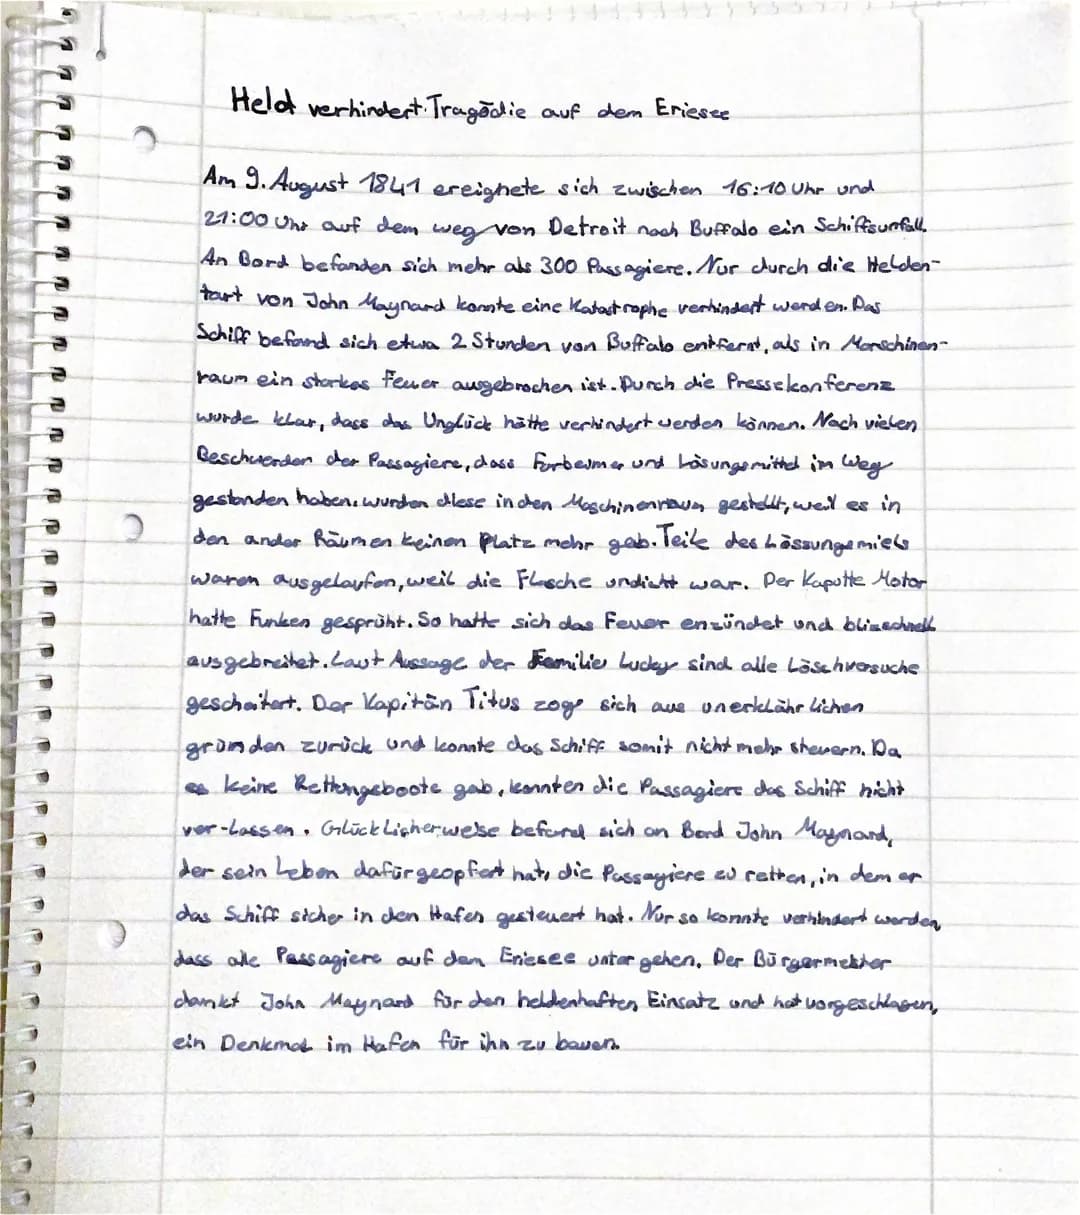 Held verhindert Tragödie auf dem Eriesee
Am 9. August 1841 ereignete sich zwischen 16:10 Uhr und
21:00 Uhr auf dem weg von Detroit nach Buffalo ein Schiffsunfall.
An Bord befanden sich mehr als 300 Passagiere. Nur durch die Helden-
tart von John Maynard konnte eine Katastrophe verhindert werden. Das
Schiff befand sich etwa 2 Stunden von Buffalo entfernt, als in Marschinen-
raum ein starkes Feuer ausgebrochen ist. Durch die Pressekonferenz
wurde klar, dass das Unglück hätte verhindert werden können. Nach vielen
Beschwerden der Passagiere, dass Farbeimer und Lösungsmittel im Weg
gestanden haben, wurden diese in den Maschinenraum gestellt, weil es in
den ander Räumen keinen Platz mehr gab. Teile des Lössungsmiels
waren ausgelaufen, weil die Flasche undicht war. Der Kaputte Motor
hatte Funken gesprüht. So hatte sich das Feuer enzündet und blizschnell
ausgebreitet. Laut Aussage der Familie Lucky sind alle Löschversuche
gescheitert. Der Kapitän Titus zog sich aus unerklährlichen
gründen zurück und konnte das Schiff somit nicht mehr steuern. Da
es keine Rettungsboote gab, konnten die Passagiere das Schiff nicht
ver-lassen. Glücklicherweise befand sich an Bord John Maynard,
der sein Leben dafür geopfert hat, die Passagiere zu retten, in dem er
das Schiff sicher in den Hafen gesteuert hat. Nur so konnte verhindert werden,
dass alle Passagiere auf dem Eriesee unter gehen. Der Bürgermeister
dankt John Maynard für den heldenhaften Einsatz und hat vorgeschlagen,
ein Denkmal im Hafen für ihn zu bauen.